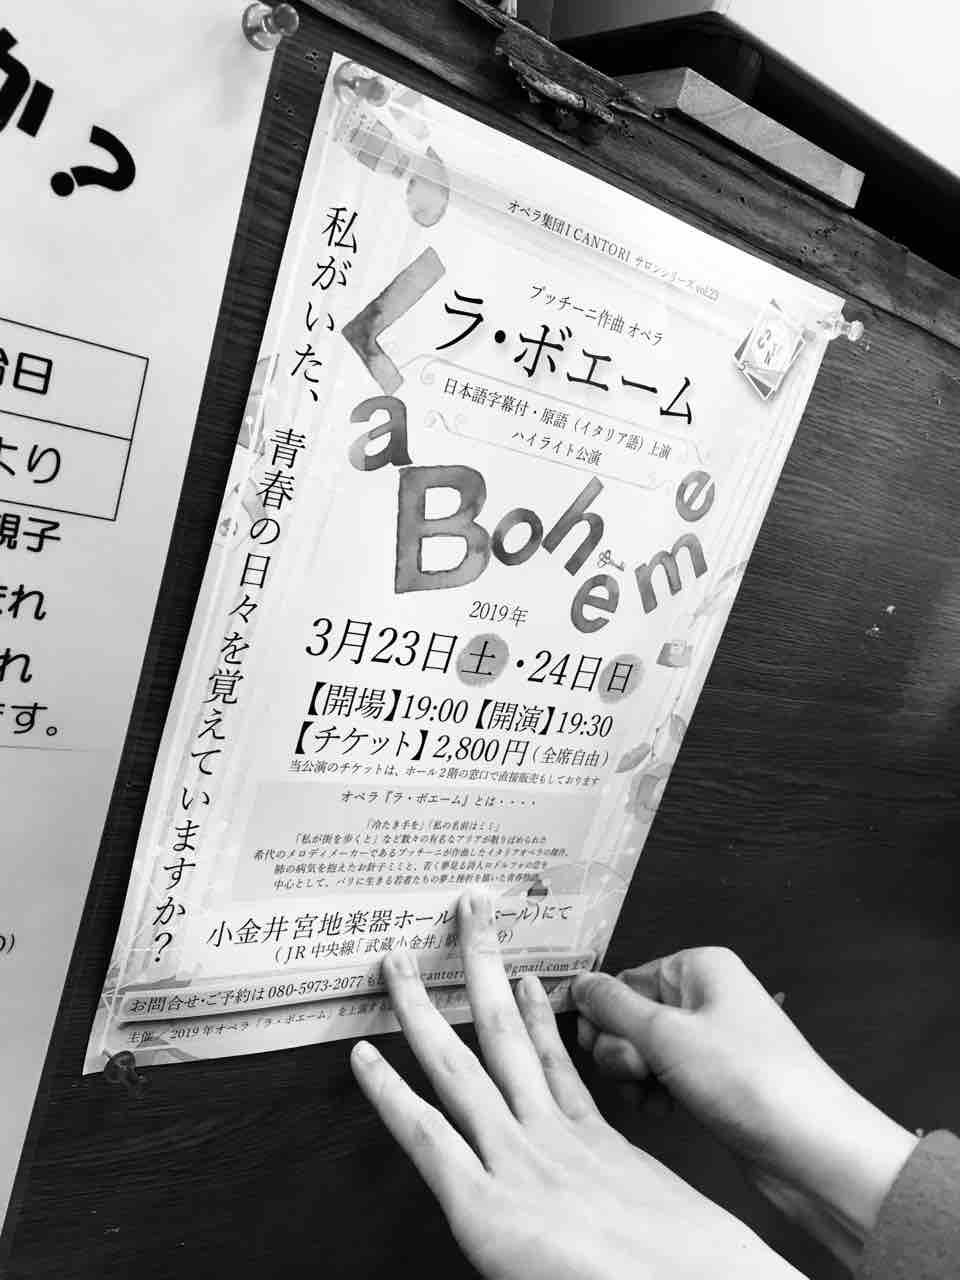 か?
日
より
親子
まれ
れ
ます。
オペラ集団I CANTORI サロンシリーズ vol.23
プッチーニ作曲 オペラ
ラ・ボエーム
日本語字幕付・原語(イタリア語)上演
ハイライト公演
La Boheme
私がいた、青春の日々を覚えていますか?
2019年
3月23日土・24日日
【開場】19:00【開演】19:30
【チケット】2,800円(全席自由)
当公演のチケットは、ホール2階の窓口で直接販売もしております
オペラ『ラ・ボエーム』とは・・・・
「冷たき手を」「私の名前はミミ」
「私が街を歩くと」など数々の有名なアリアが散りばめられた
希代のメロディメーカーであるプッチーニが作曲したイタリアオペラの傑作。
肺の病気を抱えたお針子ミミと、若く夢見る詩人ロドルフォの恋を
中心として、パリに生きる若者たちの夢と挫折を描いた青春物語。
小金井宮地楽器ホール ホール)にて
(JR中央線「武蔵小金井」駅 分)
お問合せ・ご予約は 080-5973-2077 も cantori @gmail.com まで
主催/2019年オペラ「ラ・ボエーム」を上演する